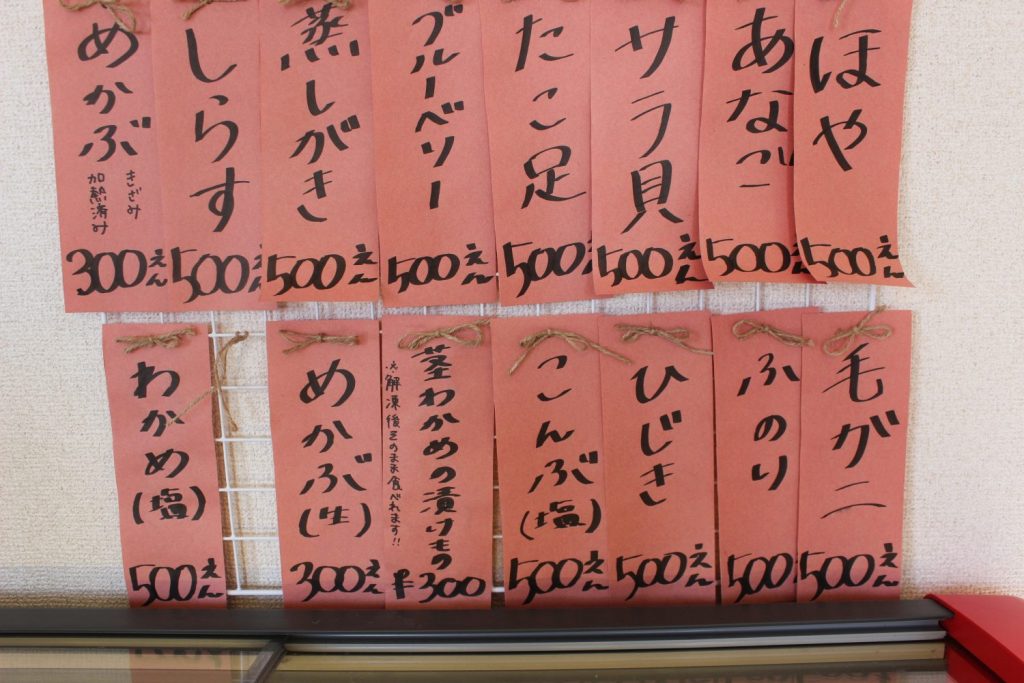 ほや
500えん
あなご
500
サラ貝
500えん
たこ足
500
ブルーベリー
500えん
蒸しがき
500えん
しらす
500えん
めかぶ
きざみ
加熱済み
300えん
毛ガニ
500えん
ふのり
500
ひじき
500えん
こんぶ(塩)
500えん
茎わかめの漬けもの
※解凍後そのまま食べれます!!
¥300
めかぶ(生)
300えん
わかめ(塩)
500えん